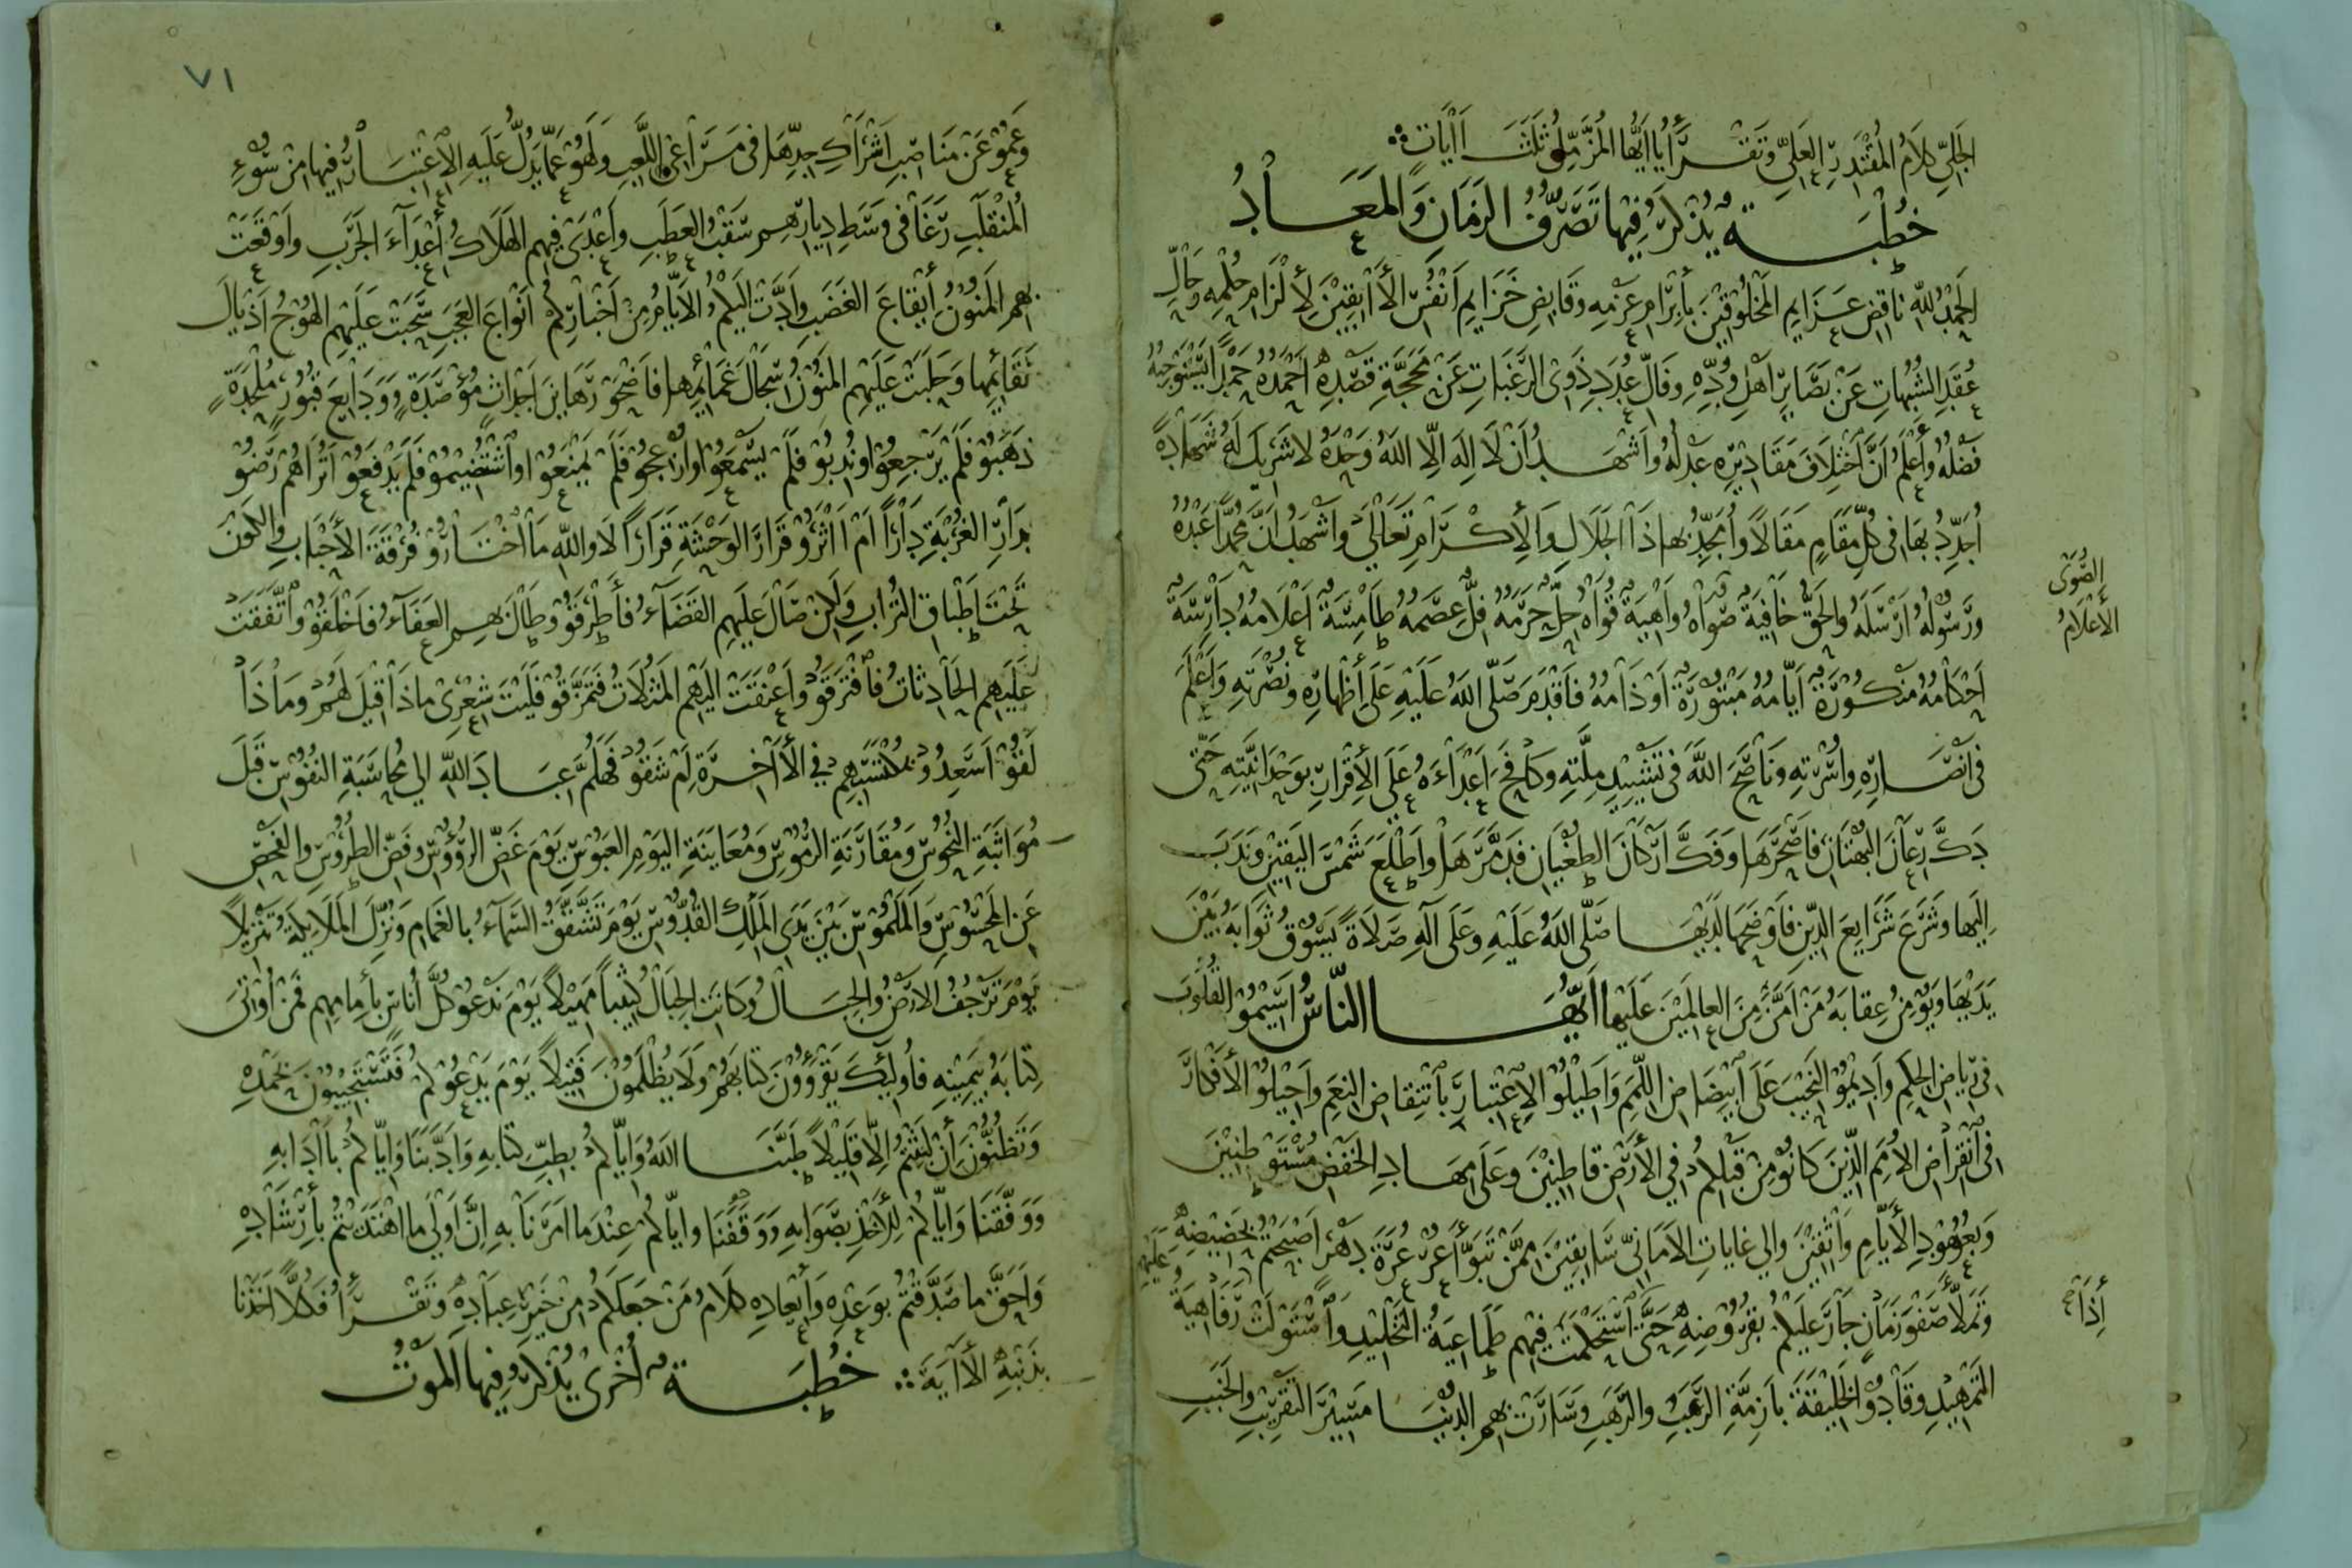 الجَلِيِّ كَلَامُ المُقْتَدِرِ العَلِيِّ وَتَقْرَأُ يَا أَيُّهَا المُزَّمِّلُ ثَلَثَ اٰيَاتٍ
خُطْبَةٌ يُذْكَرُ فِيهَا تَصَرُّفُ الزَمَانِ وَالمَعَادُ
الحَمْدُ لِلّهِ نَاقِضِ عَزَايِمِ المَخْلُوقِيْنَ بِأِبْرَامِ عَزْمِهِ وَقَابِضِ خَزَايِمِ أَنْفُسِ الأَابِقِيْنَ لِأِلْزَامِ حُكْمِهِ وَحَالِّ
عُقَدِ الشُبُهَاتِ عَنْ بَصَايِرِ أَهْلِ وُدِّهِ وَفَالِّ عُدَدِ ذَوِي الرَغَبَاتِ عَنْ مَحَجَّةِ قَصْدِهِ أَحْمَدُهُ حَمْدًا يَسْتَوْجِبُهُ
فَضْلُهُ وَأَعْلَمُ أَنَّ اخْتِلَافَ مَقَادِيْرِهِ عَدْلُهُ وَأَشْهَدُ أَنْ لَا إِلَهَ إِلّا اللهُ وَحْدَهُ لا شَرِيكَ لَهُ شَهَادَةً
أُجَدِّدُ بِهَا فِى كُلِّ مَقَامٍ مَقَالًا وَأُمَجِّدُ بِهَا ذَا الجَلَالِ وَالأِكْرَامِ تَعَالَى وَأَشْهَدُ أَنَّ مُحَمَّدًا عَبْدُهُ
وَرَسُولُهُ أَرْسَلَهُ وَالحَقُّ خَافِيَةٌ صُوَاهُ وَاهِيَةٌ قُوَاهُ حِلٌّ حَرَمُهُ فِلٌّ عِصَمُهُ طَامِسَةٌ أَعْلَامُهُ دَارِسَةٌ
الصُوَى
الأَعْلَامُ
أَحْكَامُهُ مَنْكُوْرَةٌ أَيَّامُهُ مَبْتُورَةٌ أَوْذَامُهُ فَأَقْدَمَ صَلَّى اللهُ عَلَيْهِ عَلَى أِظْهَارِهِ وَنُصْرَتِهِ وَأَعْلَمَ
فِى أَنْصَارِهِ وَأُسْرَتِهِ وَنَاصَحَ اللهَ فِى تَشْيِيدِ مِلَّتِهِ وَكَافَحَ أَعْدَاءَهُ عَلَى الأِقْرَارِ بِوَحْدَانِيَّتِهِ حَتَّى
دَكَّ رِعَانَ البُهْتَانِ فَأَصْحَرَهَا وَفَكَّ أَرْكَانَ الطُغْيَانِ فَدَمَّرَهَا وَأَطْلَعَ شَمْسَ اليَقِيْنِ وَنَدَبَ
إِلَيهَا وَشَرَعَ شَرَايِعَ الدِّينِ فَأَوْضَحَهَا لَدَيْهَا صَلَّى اللهُ عَلَيْهِ وَعَلَى آلِهِ صَلَاةً يَسُوْقُ ثَوَابَهُ بَيْنَ
يَدَيْهَا وَيُؤْمِنُ عِقَابَهُ مَنْ أَمَّنَ مِنَ العالَمِيْنَ عَلَيْهَا أَيُّهَا النَّاسُ أَسِيْمُوْ القُلُوبَ
فِى رِيَاضِ الحِكَمِ وَأَدِيْمُوْ النَحِيْبَ عَلَى ابْيِضَاضِ اللِّمَمِ وَأَطِيْلُوْ الِاعْتِبَارَ بِانْتِقَاضِ النِعَمِ وَأَجِيْلُوْ الأَفْكَارَ
فِى انْقِرَاضِ الأُمَمِ الَّذِينَ كَانُوْ مِنْ قَبْلِكُمْ فِي الأَرْضِ قَاطِنِيْنَ وَعَلَى مِهَادِ الخَفْضِ مُسْتَوْطِنِيْنَ
وَبِعُهُوْدِ الأَيَّامِ وَاثِقِيْنَ وَالى غَايَاتِ الأَمَانِيِّ سَابِقِيْنَ مِمَّنْ تَبَوَّأَ عُرْعُرَةَ دَهْرٍ أَصْبَحْتُمْ بِحَضِيْضِهِ
وَتَمَلَّأَ صَفْوَ زَمَانٍ جَارَ عَلَيْكُمْ بِقُرُوْضِهِ حَتَّى اسْتَحْكَمَتْ فِيْهِم طَمَاعِيَةُ التَخْلِيْدِ وَاسْتَوْلَتْ رَفَاهِيَةُ
إِذَا
التَمْهِيْدِ وَقَادُوْ الخَلِيْقَةَ بِأَزِمَّةِ الرَغَبِ وَالرَهَبِ وَسَارَتْ بِهِمِ الدُنْيَا مَسِيْرَ التَقْرِيْبِ وَالخَبَبِ
٧١
وَعَمُوْ عَنْ مَنَاصِبِ أَشْرَاكِ جِدِّهَا فِى مَسْرَاعِى اللَّعِبِ وَلَهَوْ عَمَّا يَدُلُّ عَلَيْهِ الاعْتِبَارُ فِيهَا مِنْ سُوْءِ
المُنْقَلَبِ رَغَا فِى وَسَطِ دِيَارِهِم سَقْبُ العَطَبِ وَأَعْدَى فِيهِم الهَلَاكُ أَعْدَآءَ الجَرَبِ وَأَوْقَعَتْ
بِهِمُ المَنُوْنُ أِيْقَاعَ الغَضَبِ وَأَدَّتْ اليْكُمُ الأَيَّامُ مِنْ أَخْبَارِكُمْ أَنْوَاعَ العَجَبِ سَحَبَتْ عَلَيْهِمِ الهُوْجُ أَذْيَالَ
نَقَائِمِهَا وَحَلَبَتْ عَلَيْهِم المَنُوْنُ سِجَالَ غَمَائِمِهَا فَأَضْحَوْ رَهَايِنَ أَجْدَاثٍ مُؤْصَدَةٍ وَوَدَايِعَ قُبُورٍ مُلْحَدَةٍ
ذَهَبُوْ فَلَمْ يَرْجِعُوْا وَنُدِبُوْ فَلَمْ يَسْمَعُوْا وَازْعِجُوْ فَلَمْ يَمْنَعُوْا وَاسْتُضِيْمُوْ فَلَمْ يَدْفَعُوْ أَتُرَاهُمْ رَضُوْ
بِدَارِ الغُرْبَةِ دَاراً أَمْ اٰثَرُوْ قَرَارَ الوَحْشَةِ قَرَارًا لَا وَاللّهِ مَا اخْتَارُوْ فُرْقَةَ الأَحْبَابِ وَالكَوْنَ
تَحْتَ أَطْبَاقِ التُرَابِ وَلَكِنْ صَالَ عَلَيْهِمِ القَضَآءُ فَأَطْرَقُوْ وَطَالَ بِهِمِ العَفَآءُ فَأَخْلَقُوْ وَاتَّفَقَتْ
عَلَيْهِمِ الحَادِثَاتُ فَافْتَرَقُوْ وَأَعْنَقَتْ الَيْهِمِ المَثُلَاتُ فَتَمَزَّقُوْ فَلَيْتَ شِعْرِىْ مَاذَا قِيْلَ لَهُمْ وَمَاذَا
لَقُوْ أَسَعِدُوْ بِمُكْتَسَبِهِم فِي الأَاخِرَةِ أَمْ شَقُوْ فَهَلُمَّ عِبَادَ اللهِ الى مُحَاسَبَةِ النُفُوْسِ قَبْلَ
مُوَاثَبَةِ النُحُوْسِ وَمُقَارَنَةِ الرُمُوْسِ وَمُعَايَنَةِ اليَوْمِ العَبُوْسِ يَوْمَ غَضِّ الرُؤُوْسِ وَفَضِّ الطُرُوْسِ وَالفَحْصِ
عَنِ المَحْسُوْسِ وَالمَلْمُوْسِ بَيْنَ يَدَىِ المَلِكِ القُدُّوْسِ يَوْمَ تَشَقَّقُ السَمَآءُ بِالغَمَامِ وَنُزِّلَ المَلَائِكَةُ تَنْزِيْلًا
يَوْمَ تَرْجُفُ الأَرْضُ وَالجِبَالُ وَكَانَتِ الجِبَالُ كَثِيْباً مَهِيْلًا يَوْمَ نَدْعُوْ كُلَّ أُنَاسٍ بِأِمَامِهِم فَمَنْ أُوْتِىَ
كِتَابَهُ بِيَمِيْنِهِ فَأُولَئِكَ يَقْرَؤُوْنَ كِتَابَهُمْ وَلَا يُظْلَمُوْنَ فَتِيْلًا يَوْمَ يَدْعُوْكُمْ فَتَسْتَجِيْبُوْنَ بِحَمْدِهِ
وَتَظُنُّوْنَ أِنْ لَبِثْتُمْ الِّا قَلِيْلًا طَبَّنَا اللهُ وَايَّاكُمْ بِطِبِّ كِتَابِهِ وَأَدَّبَنَا وَايَّاكُمْ بِاٰدَابِهِ
وَوَفَّقَنَا وَايَّاكُمْ لِلأَخْذِ بِصَوَابِهِ وَوَقَّفَنَا وَايَّاكُمْ عِنْدَ مَا أَمَرَنَا بِهِ إِنَّ أَوْلَى مَا اهْتَدَيْتُمْ بِأِرْشَادِهِ
وَأَحَقَّ مَا صَدَّقْتُمْ بِوَعْدِهِ وَأِيْعَادِهِ كَلَامُ مَنْ جَعَلَكُمْ مِنْ خَيْرِ عِبَادِهِ وَتَقْرَأُ فَكُلًّا أَخَذْنَا
بِذَنْبِهِ الأَايَةَ خُطْبَةٌ أُخْرَى يُذْكَرُ فِيهَا المَوْتُ